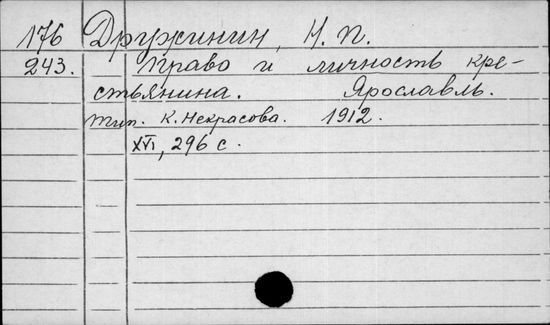 176 Дружинин, Н. П.
243. Право и личность кре-
стьянина. Ярославль.
Тип. К. Некрасова. 1912.
XVI, 296 с.